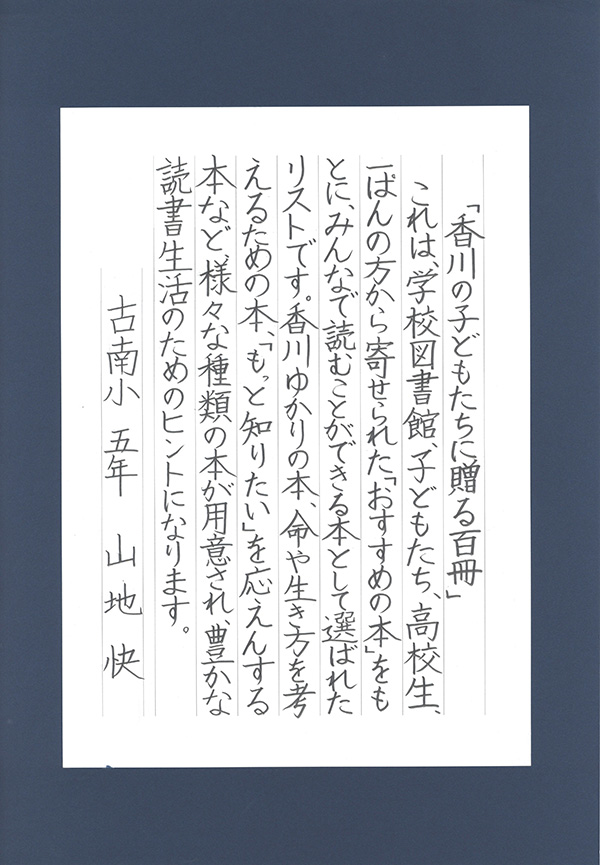 「香川の子どもたちに贈る百冊」
これは、学校図書館、子どもたち、高校生、
一ぱんの方から寄せられた「おすすめの本」をも
とに、みんなで読むことができる本として選ばれた
リストです。香川ゆかりの本、命や生き方を考
えるための本、「もっと知りたい」を応えんする
本など、様々な種類の本が用意され、豊かな
読書生活のためのヒントになります。
古南小 五年 山地 快